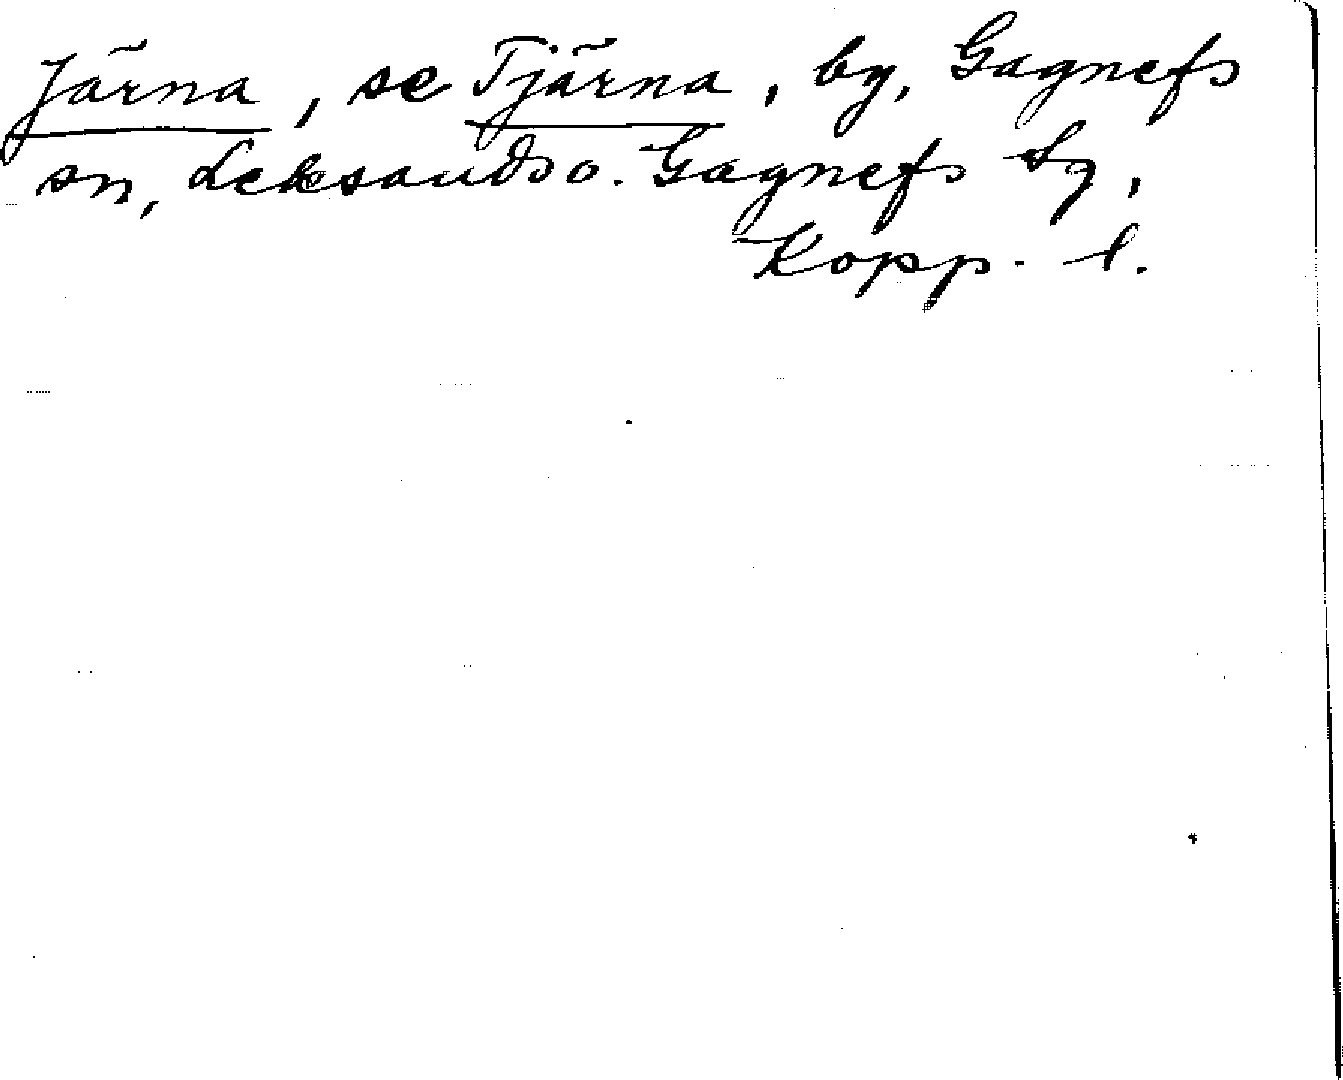 Järna, se Tjärna, by, Gagnefs
sn, Leksands o. Gagnefs tg,
Kopp. l.